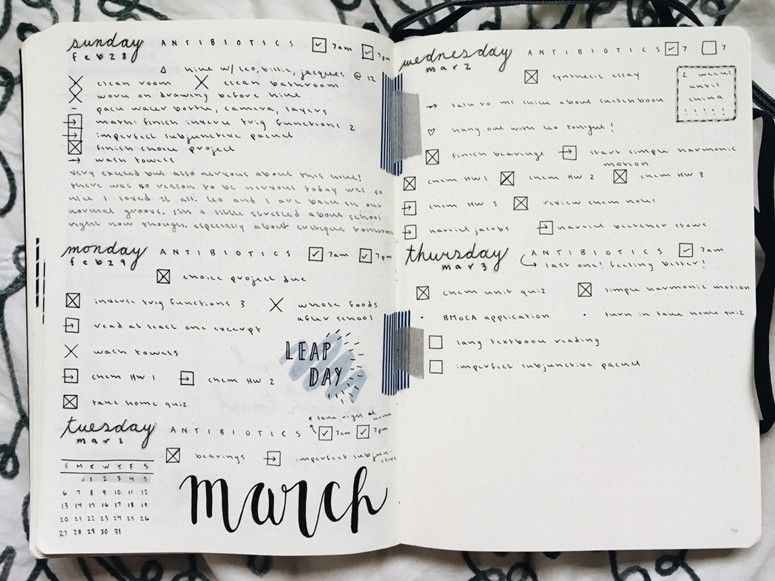 sunday ANTIBIOTICS 7am 7pm
feb 28
hike w/ leo, billie, jacques @ 12
clean room clean bathroom
work on drawing before hike
pack water bottle, camera, layers
math: finish inverse trig functions 2
imperfect subjunctive packet
finish choice project
wash towels
very excited but also nervous about this hike!
there was no reason to be nervous today was so
nice I loved it all. leo and I are back in our
normal groove. I'm a little stressed about school
right now though. especially about critique tomorrow
monday ANTIBIOTICS 7am 7pm
feb 29
choice project due
inverse trig functions 3 whole foods
after school
read at least one excerpt
wash towels
LEAP
DAY
chem HW 1 chem HW 2
take home quiz
tuesday ANTIBIOTICS 7am 7pm
mar 1
* take right at home
bearings imperfect subjunctive
S M T W T F S
1 2 3 4 5
6 7 8 9 10 11 12
13 14 15 16 17 18 19
20 21 22 23 24 25 26
27 28 29 30 31
march
wednesday ANTIBIOTICS 7 7
mar 2
synthesis essay
2 weeks
until
china
! ! ! ! !
talk to ms about sketchbook
hang out with leo tonight!
finish bearings start simple harmonic
motion
chem HW 1 chem HW 2 chem HW 3
chem HW 5 review chem notes
harriet jacobs harriet beecher stowe
thursday ANTIBIOTICS 7am
mar 3
last one! feeling better!
chem unit quiz simple harmonic motion
BMOCA application turn in take home quiz
lang textbook reading
imperfect subjunctive packet